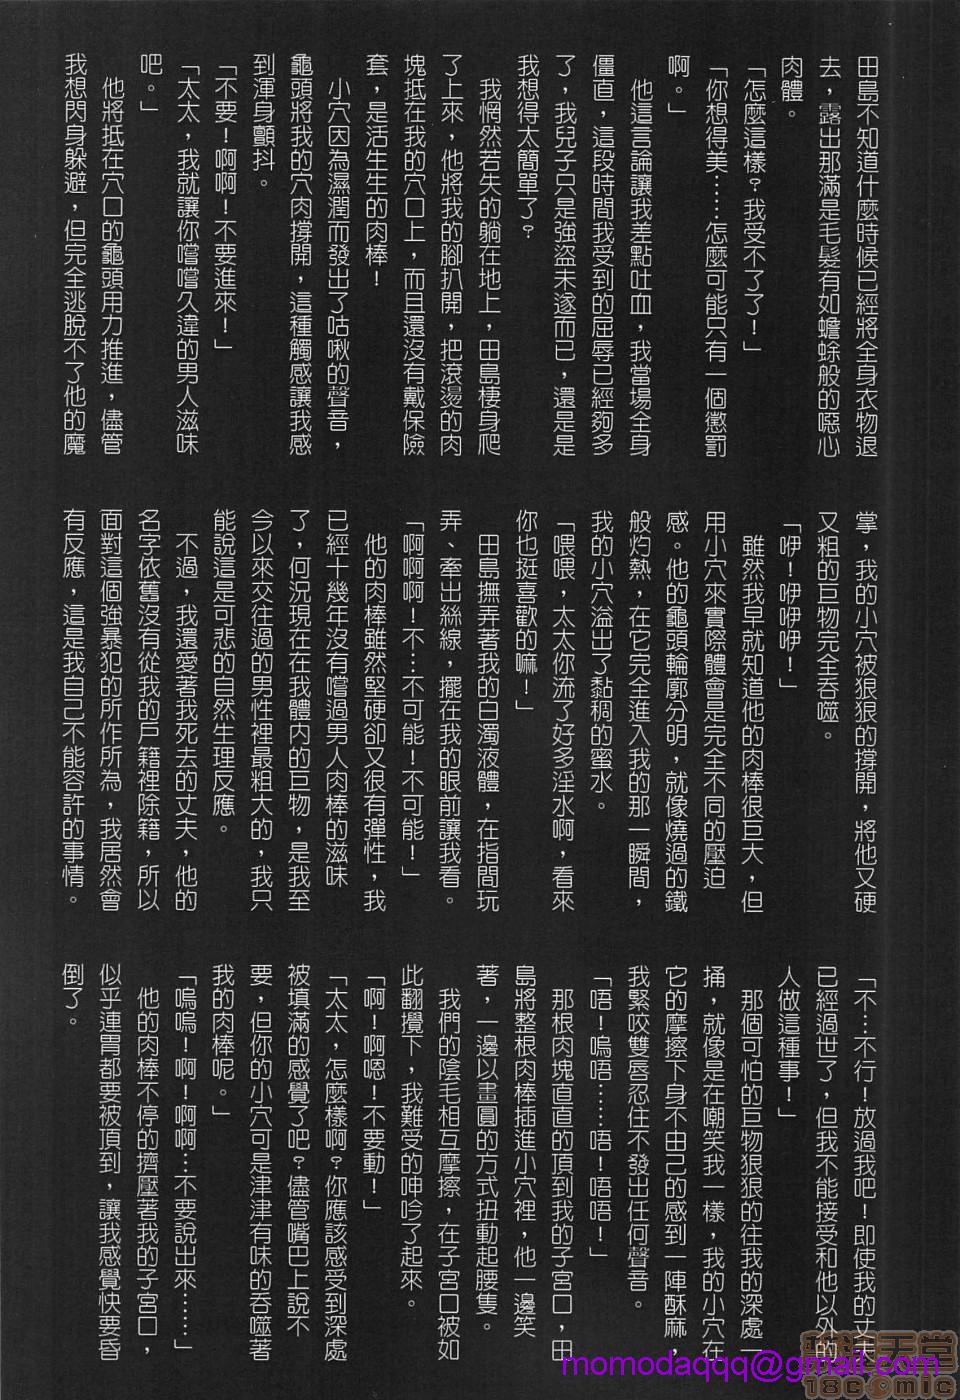 田島不知道什麼時候已經將全身衣物退
去，露出那滿是毛髮有如蟾蜍般的噁心
肉體。
「怎麼這樣？我受不了了！」
「你想得美……怎麼可能只有一個懲罰
啊。」
他這言論讓我差點吐血，我當場全身
僵直，這段時間我受到的屈辱已經夠多
了，我兒子只是強盜未遂而已，還是是
我想得太簡單了？
我惘然若失的躺在地上，田島棲身爬
了上來，他將我的腳扒開，把滾燙的肉
塊抵在我的穴口上，而且還沒有戴保險
套，是活生生的肉棒！
小穴因為濕潤而發出了咕啾的聲音，
龜頭將我的穴肉撐開，這種觸感讓我感
到渾身顫抖。
「不要！啊啊！不要進來！」
「太太，我就讓你嚐嚐久違的男人滋味
吧。」
他將抵在穴口的龜頭用力推進，儘管
我想閃身躲避，但完全逃脫不了他的魔
掌，我的小穴被狠狠的撐開，將他又硬
又粗的巨物完全吞噬。
「咿！咿咿咿！」
雖然我早就知道他的肉棒很巨大，但
用小穴來實際體會是完全不同的壓迫
感。他的龜頭輪廓分明，就像燒過的鐵
般灼熱，在它完全進入我的那一瞬間，
我的小穴溢出了黏稠的蜜水。
「喂喂，太太你流了好多淫水啊，看來
你也挺喜歡的嘛！」
田島撫弄著我的白濁液體，在指間玩
弄、牽出絲線，擺在我的眼前讓我看。
「啊啊啊！不…不可能！不可能！」
他的肉棒雖然堅硬卻又很有彈性，我
已經十幾年沒有嚐過男人肉棒的滋味
了，何況現在在我體內的巨物，是我至
今以來交往過的男性裡最粗大的，我只
能說這是可悲的自然生理反應。
不過，我還愛著我死去的丈夫，他的
名字依舊沒有從我的戶籍裡除籍，所以
面對這個強暴犯的所作所為，我居然會
有反應，這是我自己不能容許的事情。
「不…不行！放過我吧！即使我的丈夫
已經過世了，但我不能接受和他以外的
人做這種事！」
那個可怕的巨物狠狠的往我的深處一
捅，就像是在嘲笑我一樣，我的小穴在
它的摩擦下身不由己的感到一陣酥麻，
我緊咬雙唇忍住不發出任何聲音。
「唔！嗚唔……唔！唔唔！」
那根肉塊直直的頂到我的子宮口，田
島將整根肉棒插進小穴裡，他一邊笑
著，一邊以畫圓的方式扭動起腰隻。
我們的陰毛相互摩擦，在子宮口被如
此翻攪下，我難受的呻吟了起來。
「啊！啊嗯！不要動！」
「太太，怎麼樣啊？你應該感受到深處
被填滿的感覺了吧？儘管嘴巴上說不
要，但你的小穴可是津津有味的吞噬著
我的肉棒呢。」
「嗚嗚！啊！啊啊…不要說出來……」
他的肉棒不停的擠壓著我的子宮口，
似乎連胃都要被頂到，讓我感覺快要昏
倒了。
momodaqqq@gmail.com
18comic